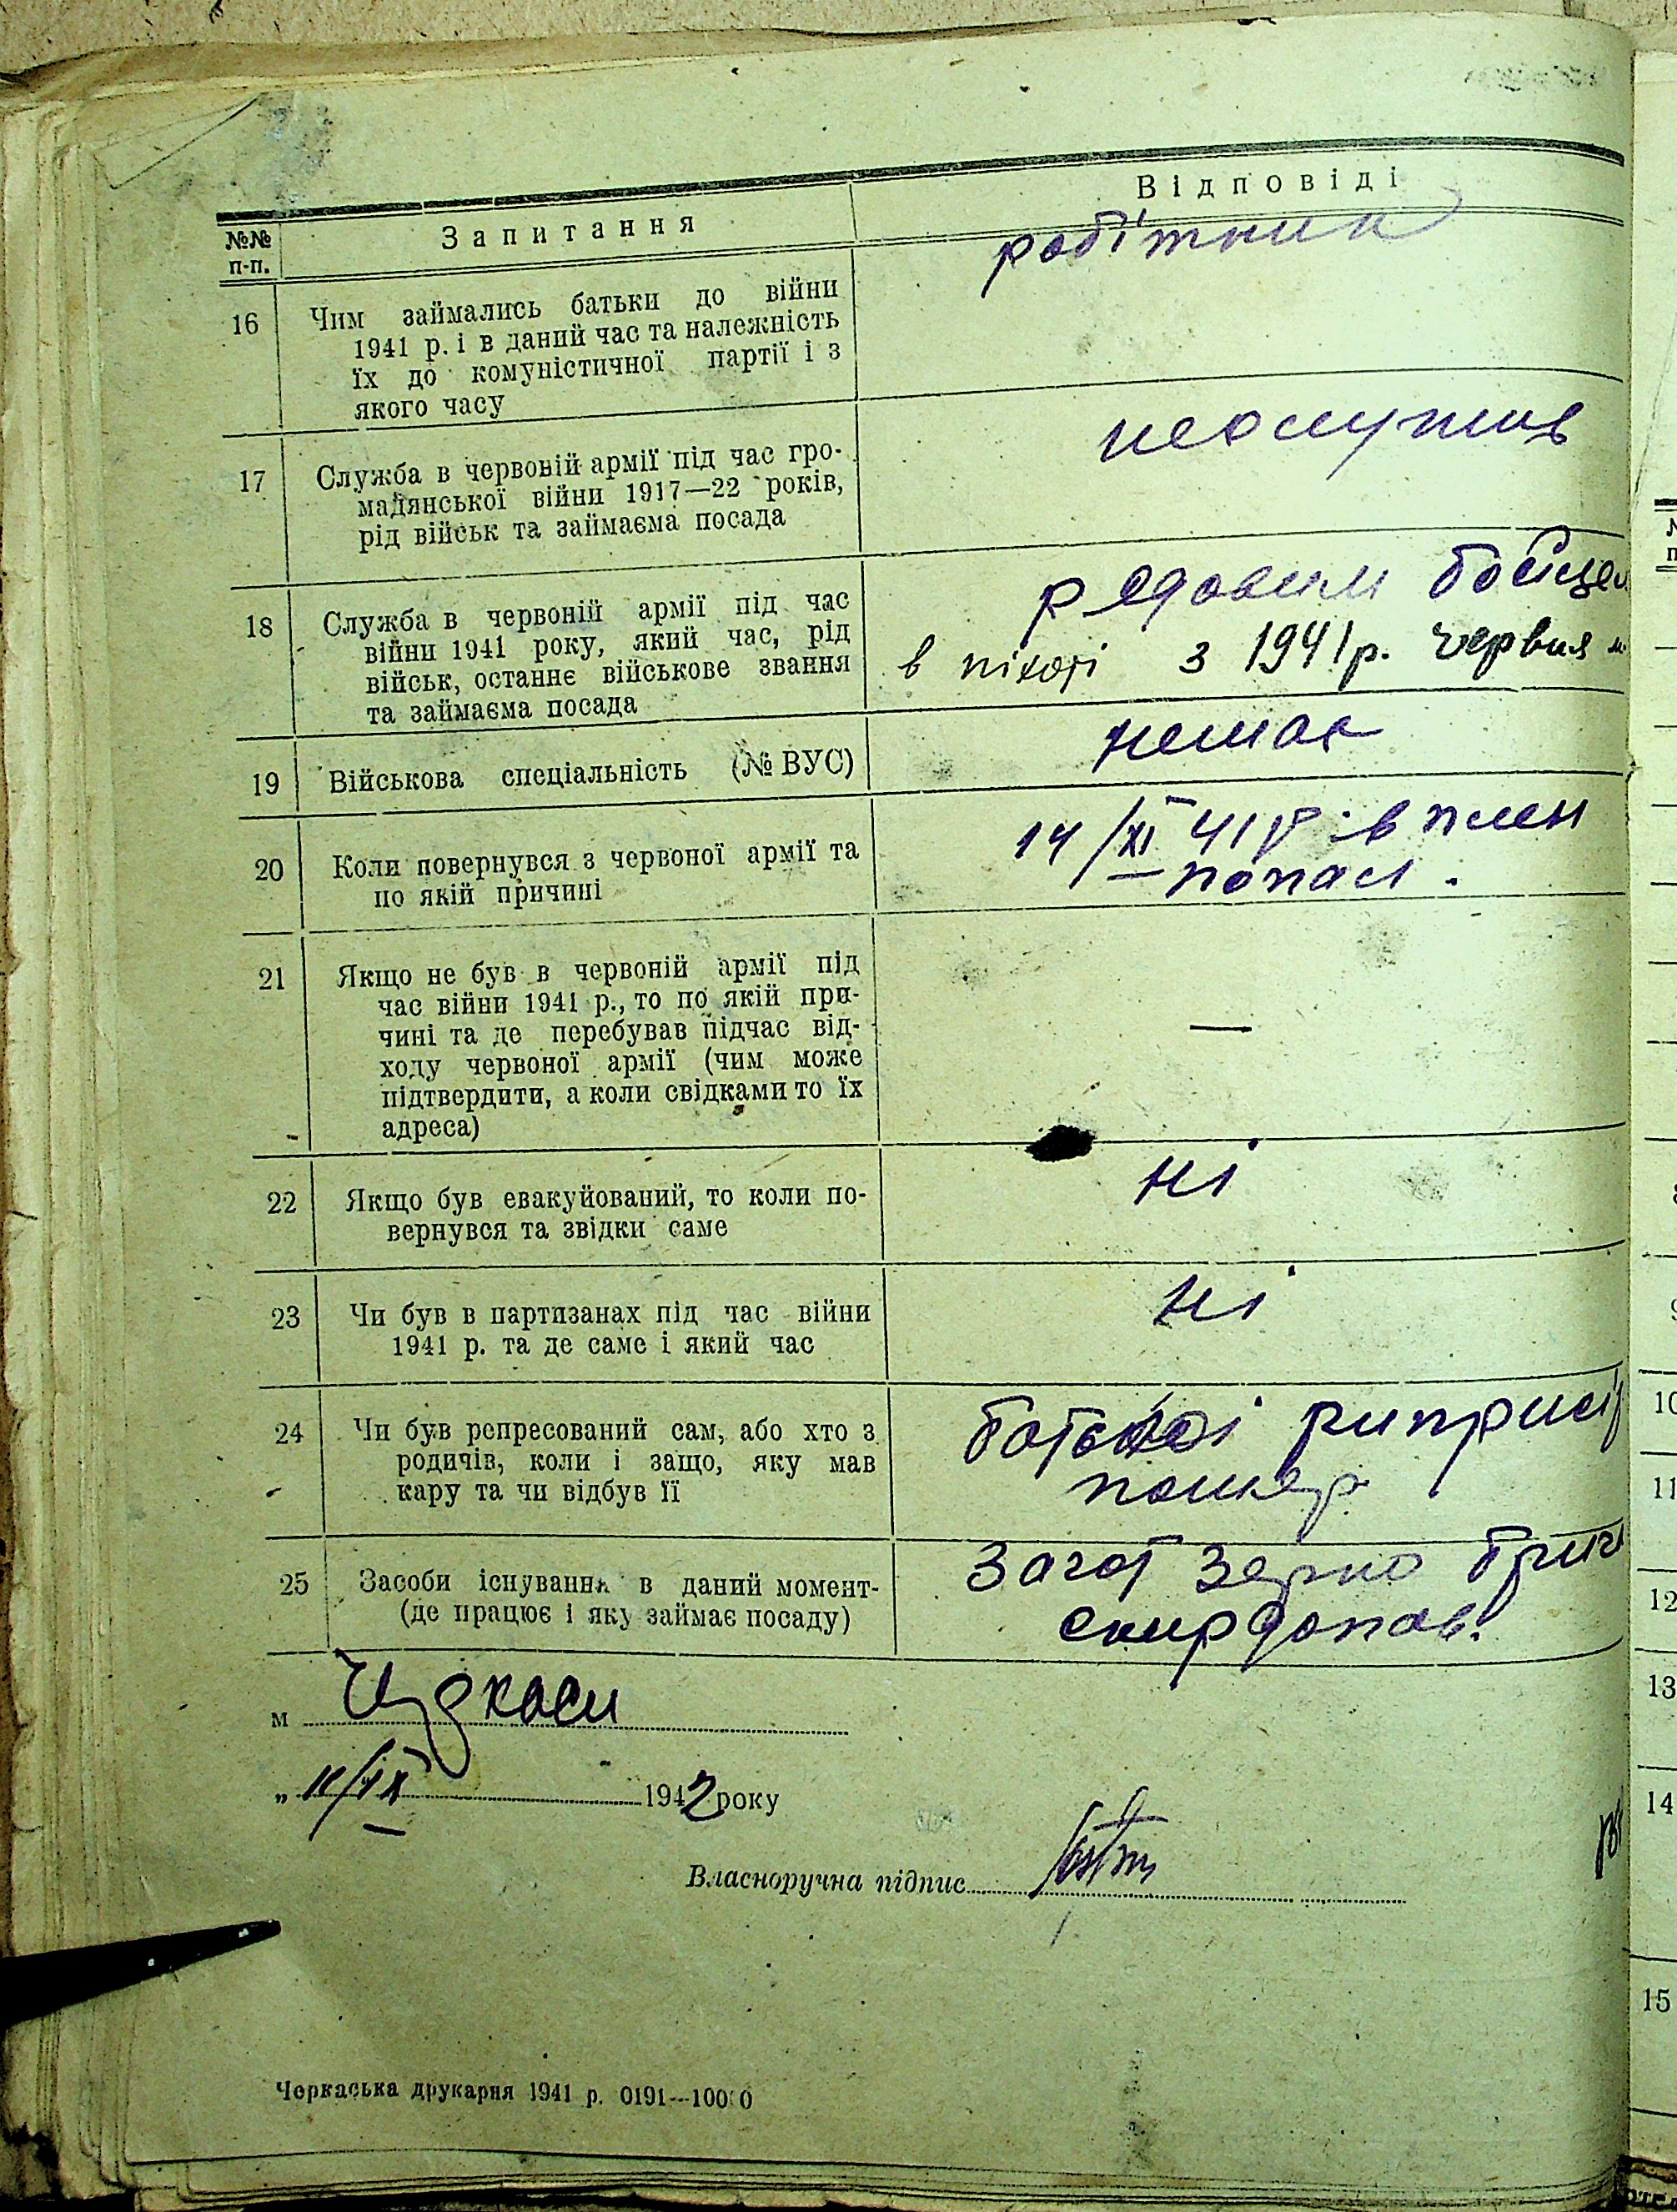 Відповіді
№№ п-п.
Запитання
робітник
16 Чим займались батьки до війни
1941 р. і в даний час та належність
їх до комуністичної партії і з
якого часу
неслужив
17 Служба в червоній армії під час гро-
мадянської війни 1917—22 років,
рід військ та займаєма посада
рядовим бойцем
18 Служба в червоній армії під час
війни 1941 року, який час, рід
військ, останнє військове звання
та займаєма посада
в піхоті з 1941 р. червня м.
немає
19 Військова спеціальність (№ ВУС)
14/XI 41 р. в плен
попал.
20 Коли повернувся з червоної армії та
по якій причині
21 Якщо не був в червоній армії під
час війни 1941 р., то по якій при-
чині та де перебував підчас від-
ходу червоної армії (чим може
підтвердити, а коли свідками то їх
адреса)
—
22 Якщо був евакуйований, то коли по-
вернувся та звідки саме
ні
23 Чи був в партизанах під час війни
1941 р. та де саме і який час
ні
24 Чи був репресований сам, або хто з
родичів, коли і защо, яку мав
кару та чи відбув її
25 Засоби існування в даний момент-
(де працює і яку займає посаду)
Загот Зерно
м Черкаси
„ 11/IX 1942 року
Власноручна підпис
Черкаська друкарня 1941 р. 0191—10000
10
11
12
13
14
15